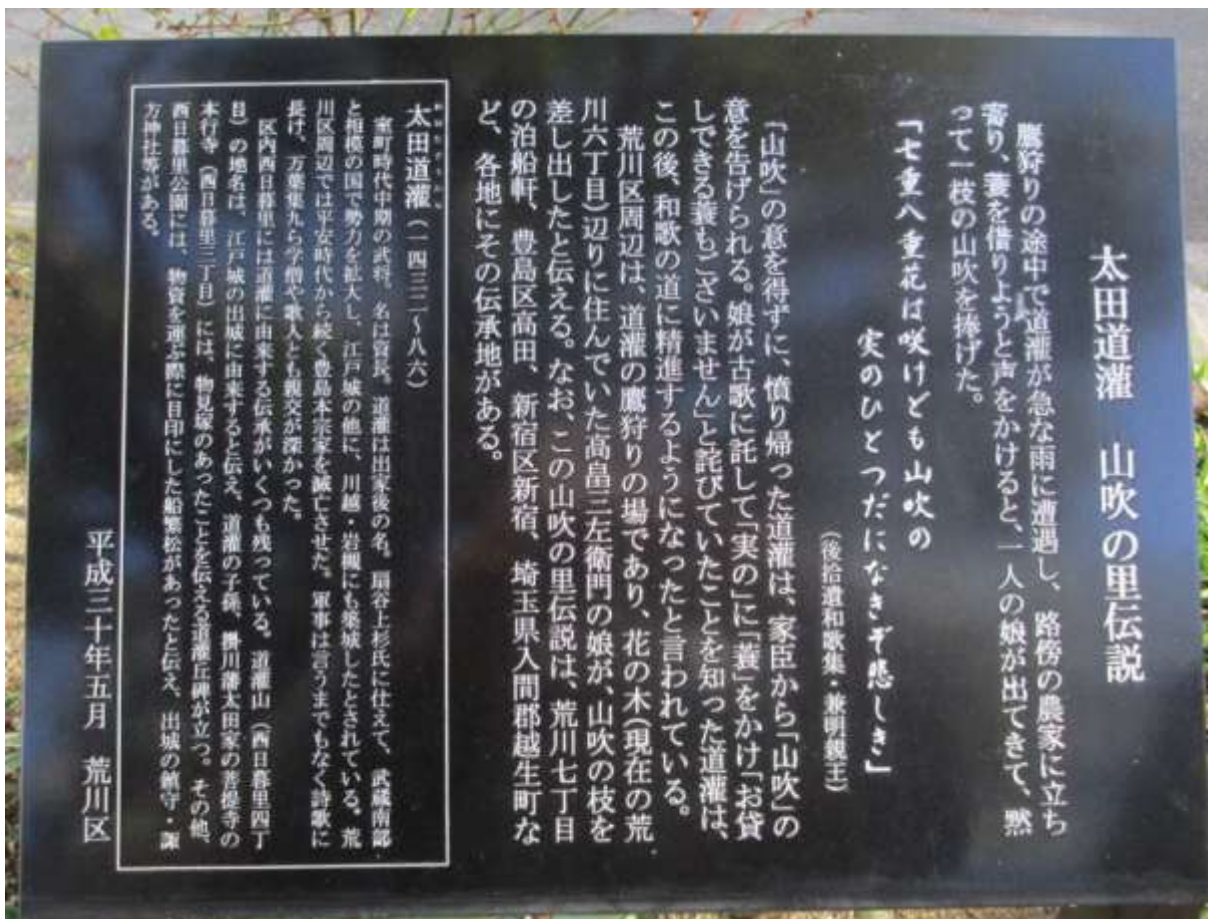 太田道灌　山吹の里伝説
鷹狩りの途中で道灌が急な雨に遭遇し、路傍の農家に立ち
寄り、蓑を借りようと声をかけると、一人の娘が出てきて、黙
って一枝の山吹を捧げた。
「七重八重花は咲けども山吹の
実のひとつだになきぞ悲しき」
（後拾遺和歌集・兼明親王）
「山吹」の意を得ずに、憤り帰った道灌は、家臣から「山吹」の
意を告げられる。娘が古歌に託して「実の」に「蓑」をかけ「お貸
しできる蓑もございません」と詫びていたことを知った道灌は、
この後、和歌の道に精進するようになったと言われている。
荒川区周辺は、道灌の鷹狩りの場であり、花の木（現在の荒
川六丁目）辺りに住んでいた高畠三左衛門の娘が、山吹の枝を
差し出したと伝える。なお、この山吹の里伝説は、荒川七丁目
の泊船軒、豊島区高田、新宿区新宿、埼玉県入間郡越生町な
ど、各地にその伝承地がある。
おおたどうかん
太田道灌（一四三二～八六）
室町時代中期の武将。名は資長。道灌は出家後の名。扇谷上杉氏に仕えて、武蔵南部
と相模の国で勢力を拡大し、江戸城の他に、川越・岩槻にも築城したとされている。荒
川区周辺では平安時代から続く豊島本宗家を滅亡させた。軍事は言うまでもなく詩歌に
長け、万葉集九ら学僧や歌人とも親交が深かった。
区内西日暮里には道灌に由来する伝承がいくつも残っている。道灌山（西日暮里四丁
目）の地名は、江戸城の出城に由来すると伝え、道灌の子孫、掛川藩太田家の菩提寺の
本行寺（西日暮里三丁目）には、物見塚のあったことを伝える道灌丘碑が立つ。その他、
西日暮里公園には、物資を運ぶ際に目印にした船繋松があったと伝え、出城の鎮守・諏
方神社等がある。
平成三十年五月　荒川区